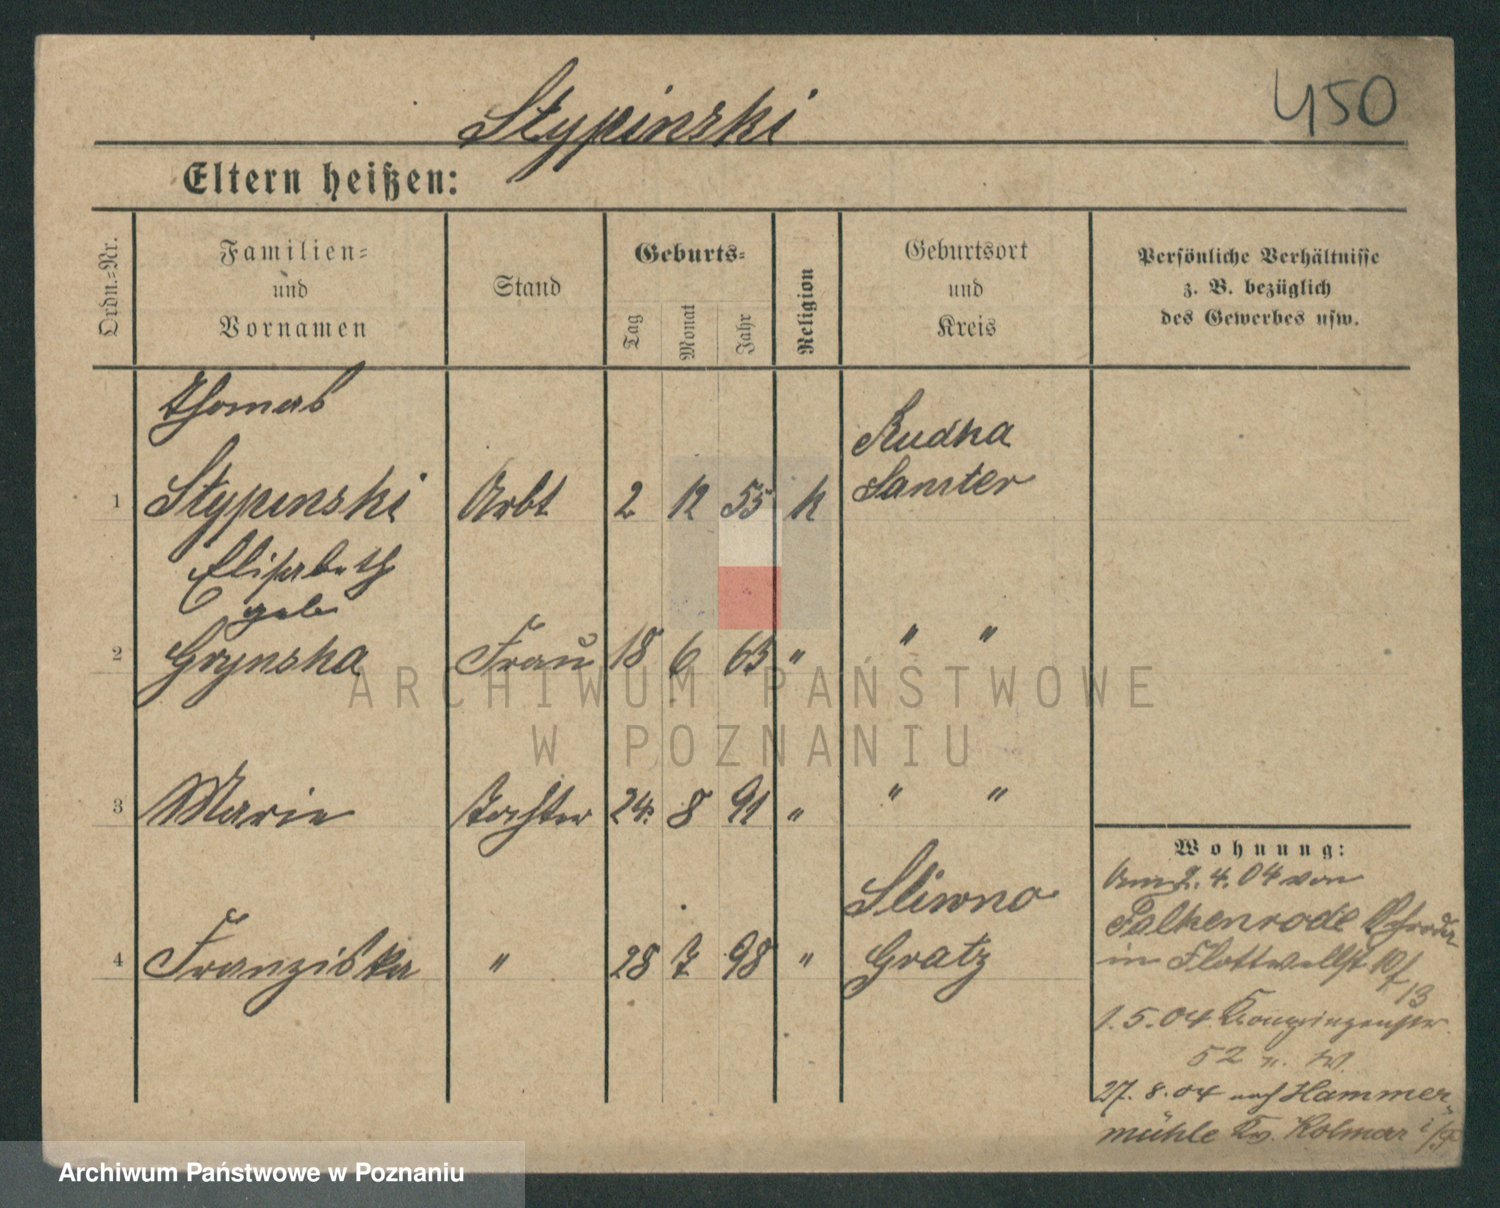 450
Stypinski
Eltern heißen:
Ordn.-Nr.
Familien-
und
Vornamen
Stand
Geburts-
Tag
Monat
Jahr
Religion
Geburtsort
und
Kreis
Persönliche Verhältnisse
z. B. bezüglich
des Gewerbes usw.
Thomas
1 Stypinski Arbt 2 12 55 k Rudka
Samter
Elisabeth
geb
2 Grynska Frau 18 6 65 " " "
3 Marie Tochter 24. 8 91 " " "
4 Franziska " 28 7 98 " Sliwno
Gratz
Wohnung:
Am 2.4.04 von
Falkenrode Schroda
in Flottwellst 10
13
1.5.04 Kronprinzenstr.
52
27.8.04 nach Hammer-
mühle Kr. Kolmar i/P
ARCHIWUM PAŃSTWOWE
W POZNANIU
Archiwum Państwowe w Poznaniu